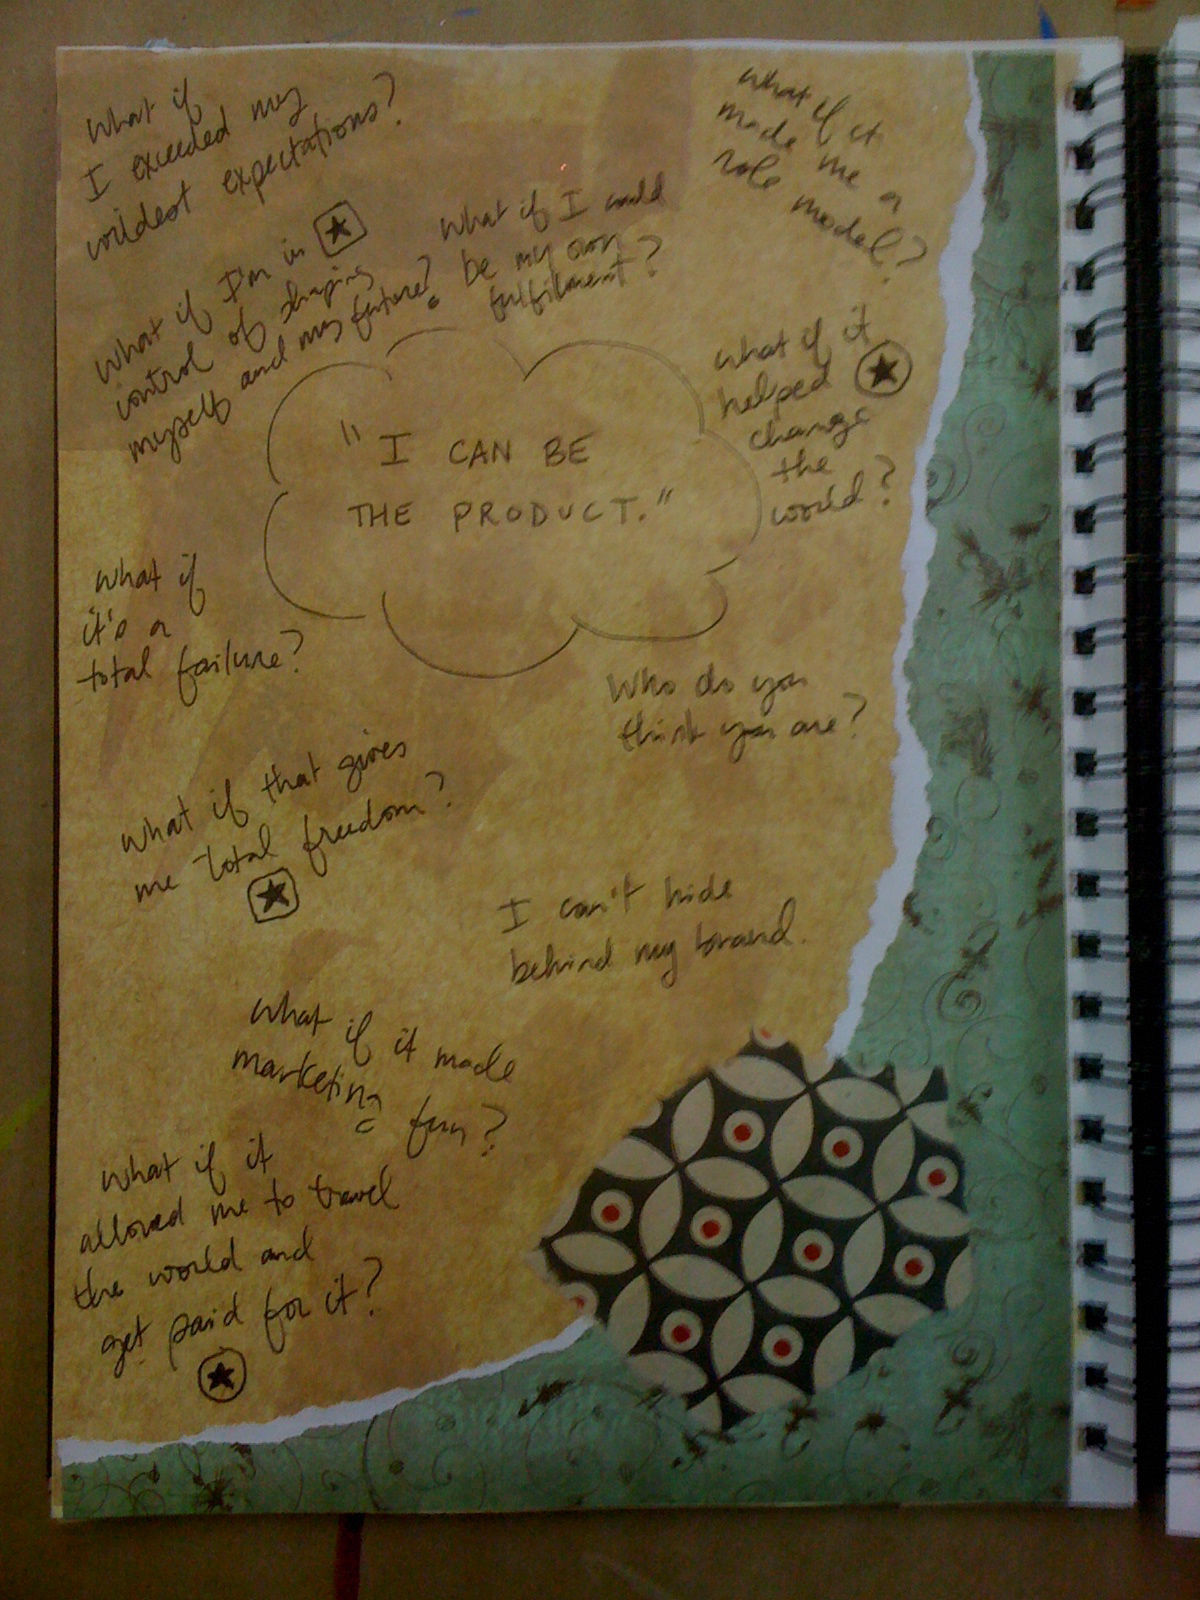 What if
I exceeded my
wildest expectations?
What if it
made me a
role model?
What if I'm in
control of shaping
myself and my future?
What if I could
be my own
fulfilment?
What if it
helped
change
the
world?
"I CAN BE
THE PRODUCT."
What if
it's a
total failure?
Who do you
think you are?
What if that gives
me total freedom?
I can't hide
behind my brand.
What if it made
marketing fun?
What if it
allowed me to travel
the world and
get paid for it?